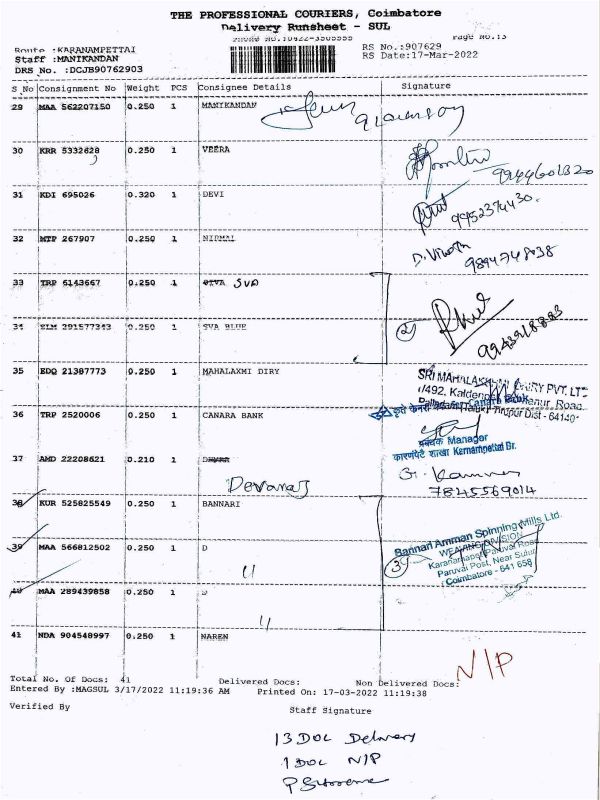 THE PROFESSIONAL COURIERS, Coimbatore
Delivery Runsheet - SUL
Page No.13
Route :KARANAMPETTAI
RS No.:907629
Staff :MANIKANDAN
RS Date:17-Mar-2022
DRS No. :DCJB90762903
S_No Consignment No Weight PCS Consignee Details Signature
29 MAA 562207150 0.250 1 MANIKANDAN
30 KRR 5332628 0.250 1 VEERA
9944601320
31 KDI 695026 0.320 1 DEVI
9952374430.
32 MTP 267907 0.250 1 NIRMAL
D. Vinoth
9894748038
33 TRP 6143667 0.250 1 SIVA SVA
34 SLM 291577343 0.250 1 SVA BLUE
2
9943918883
35 EDQ 21387773 0.250 1 MAHALAXMI DIRY
SRI MAHALAKSHMI DAIRY PVT. LTD
36 TRP 2520006 0.250 1 CANARA BANK
कृते केनरा बैंक For Canara Bank
Tirupur Dist - 64140
प्रबंधक Manager
कारणंपेट्टै शाखा Karnampettai Br.
37 AMD 22208621 0.210 1
Devaraj
7845569014
38 KUR 525825549 0.250 1 BANNARI
39 MAA 566812502 0.250 1 D
Bannari Amman Spinning Mills Ltd.
WEAVING DIVISION
Karanampet Paruvai Road
Paruvai Post, Near Sulur
Coimbatore - 641 658
3
40 MAA 289439858 0.250 1 D
41 NDA 904548997 0.250 1 NAREN
N/P
Total No. Of Docs: 41 Delivered Docs: Non Delivered Docs:
Entered By :MAGSUL 3/17/2022 11:19:36 AM Printed On: 17-03-2022 11:19:38
Verified By Staff Signature
13 DOC Delivery
1 DOC N/P